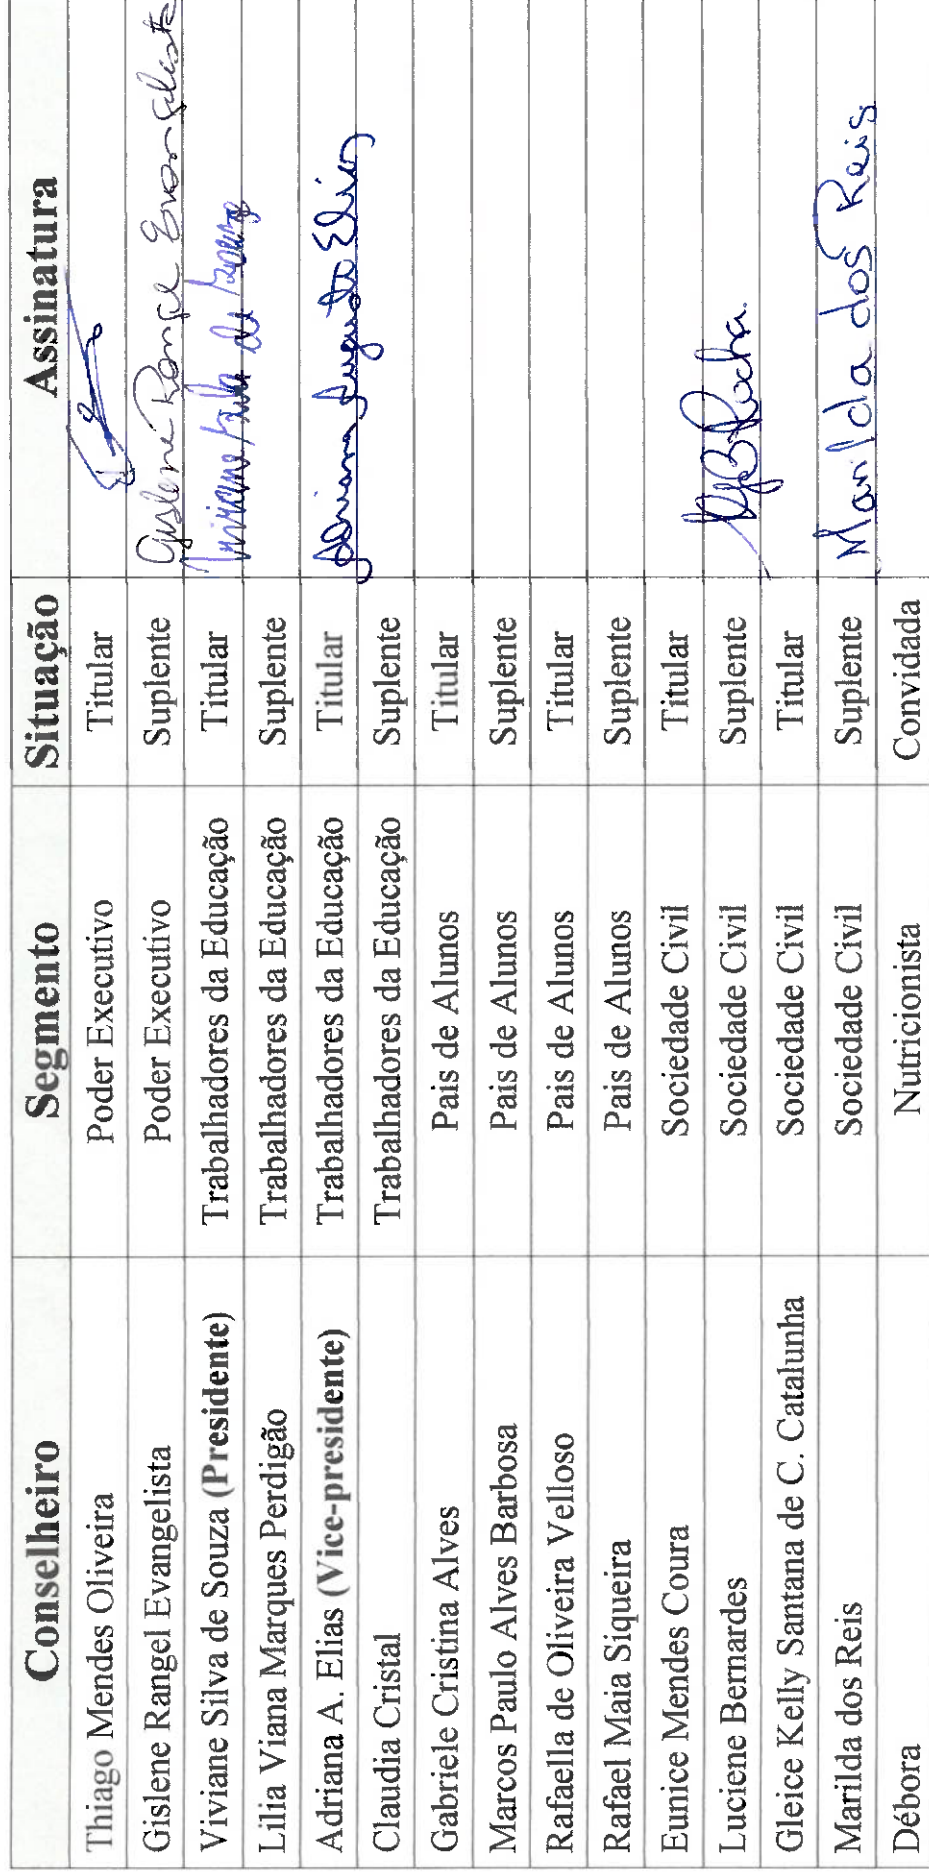 Conselheiro Segmento Situação Assinatura
Thiago Mendes Oliveira Poder Executivo Titular
Gislene Rangel Evangelista Poder Executivo Suplente Gislene Rangel Evangelista
Viviane Silva de Souza (Presidente) Trabalhadores da Educação Titular Viviane Silva de Souza
Lilia Viana Marques Perdigão Trabalhadores da Educação Suplente
Adriana A. Elias (Vice-presidente) Trabalhadores da Educação Titular Adriana Augusta Elias
Claudia Cristal Trabalhadores da Educação Suplente
Gabriele Cristina Alves Pais de Alunos Titular
Marcos Paulo Alves Barbosa Pais de Alunos Suplente
Rafaella de Oliveira Velloso Pais de Alunos Titular
Rafael Maia Siqueira Pais de Alunos Suplente
Eunice Mendes Coura Sociedade Civil Titular
Luciene Bernardes Sociedade Civil Suplente Rocha
Gleice Kelly Santana de C. Catalunha Sociedade Civil Titular
Marilda dos Reis Sociedade Civil Suplente Marilda dos Reis
Débora Nutricionista Convidada